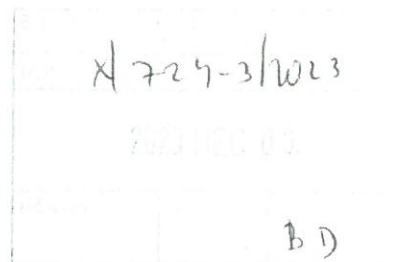 X/724-3/2023
BD